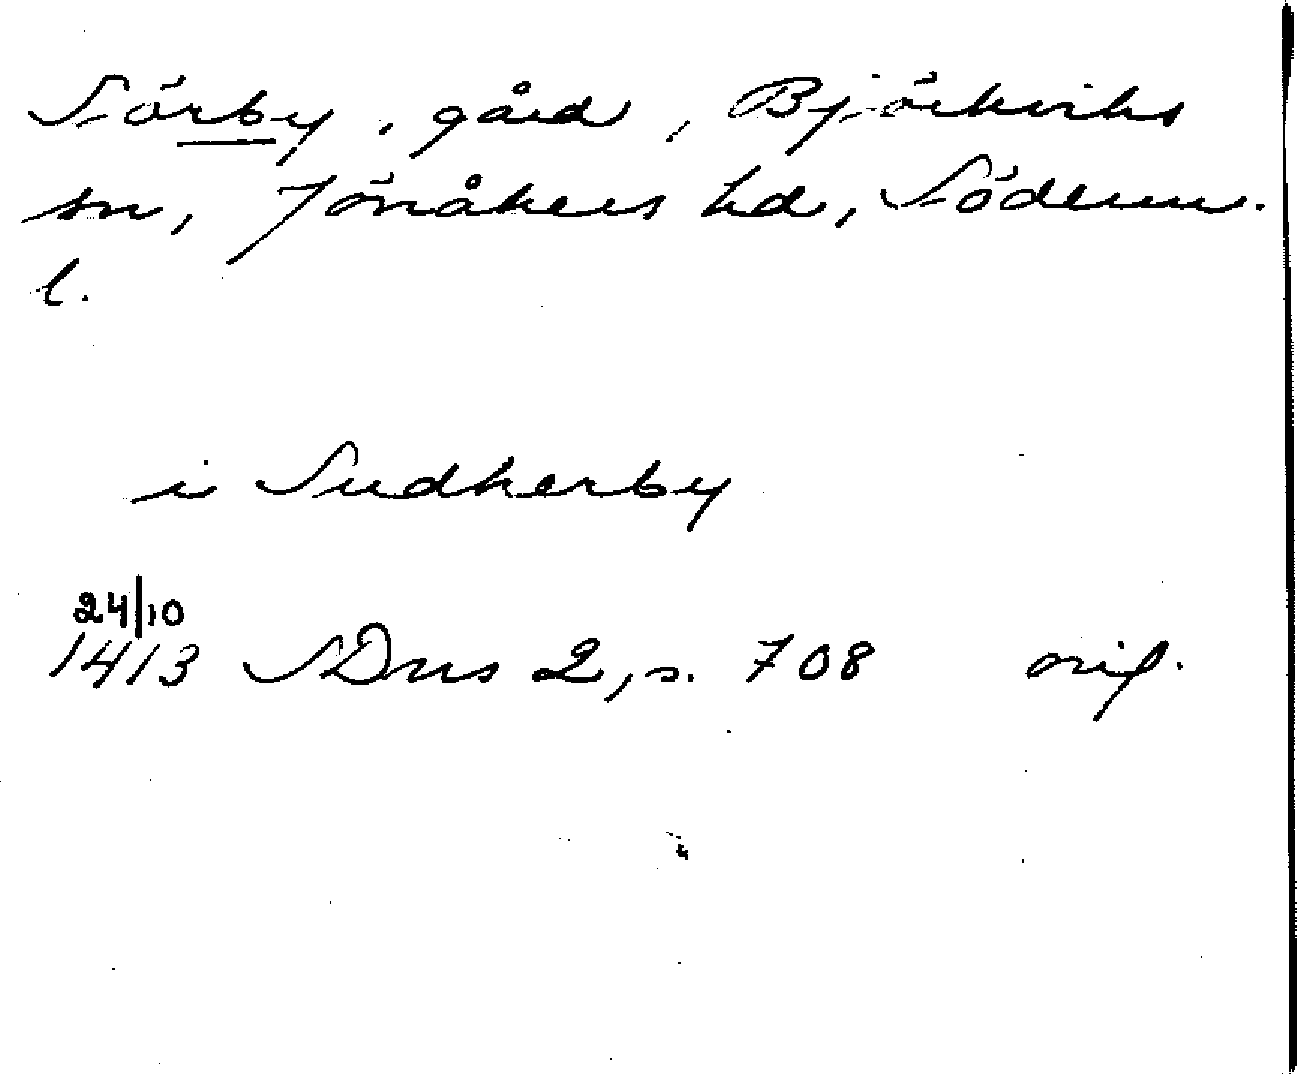 Sörby, gård, Björkviks
sn, Jönåkers hd, Söderm.
l.
i Sudherby
24/10
1413 SDns 2, s. 708 orig.